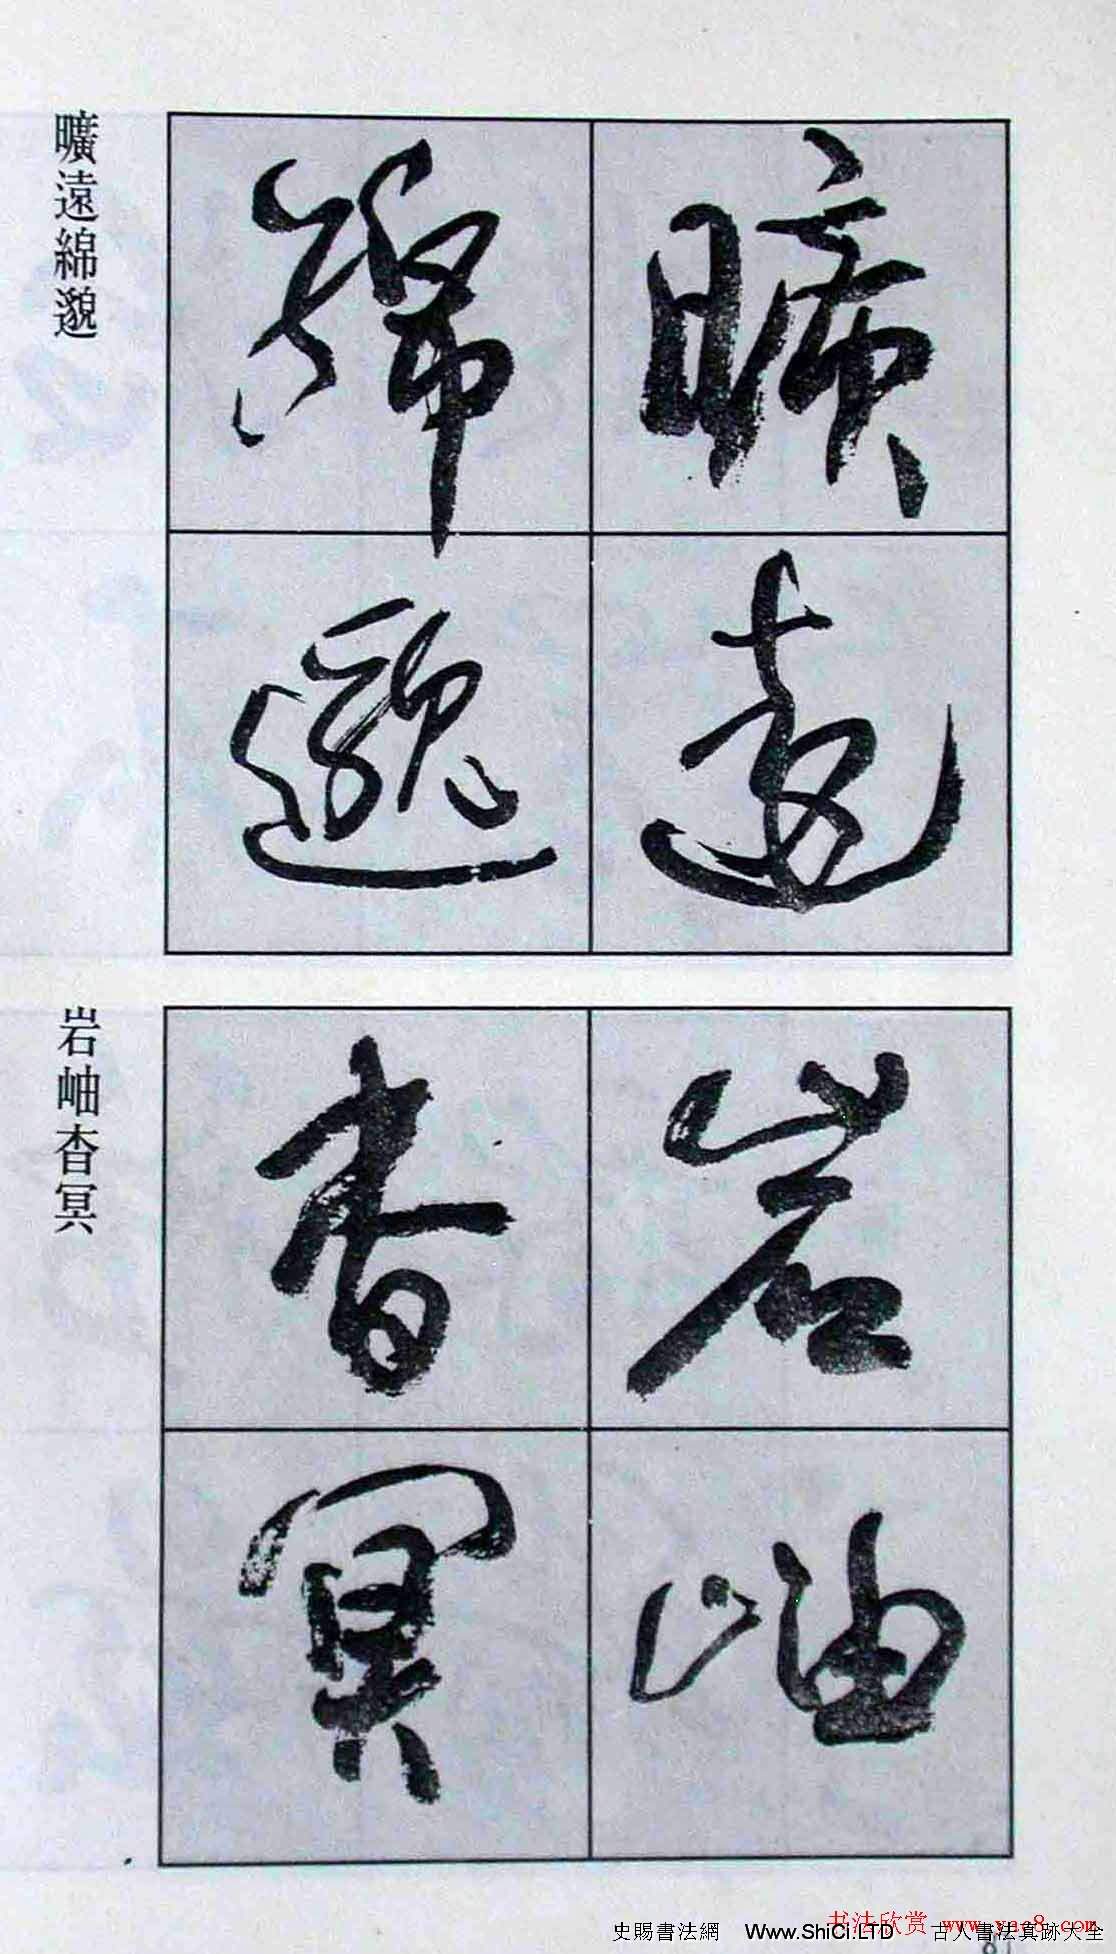 曠遠
綿邈
曠遠綿邈
岩岫
杳冥
岩岫杳冥
书法欣赏 www.yac8.com
史賜書法網 Www.ShiCi.LTD 古人書法真跡大全